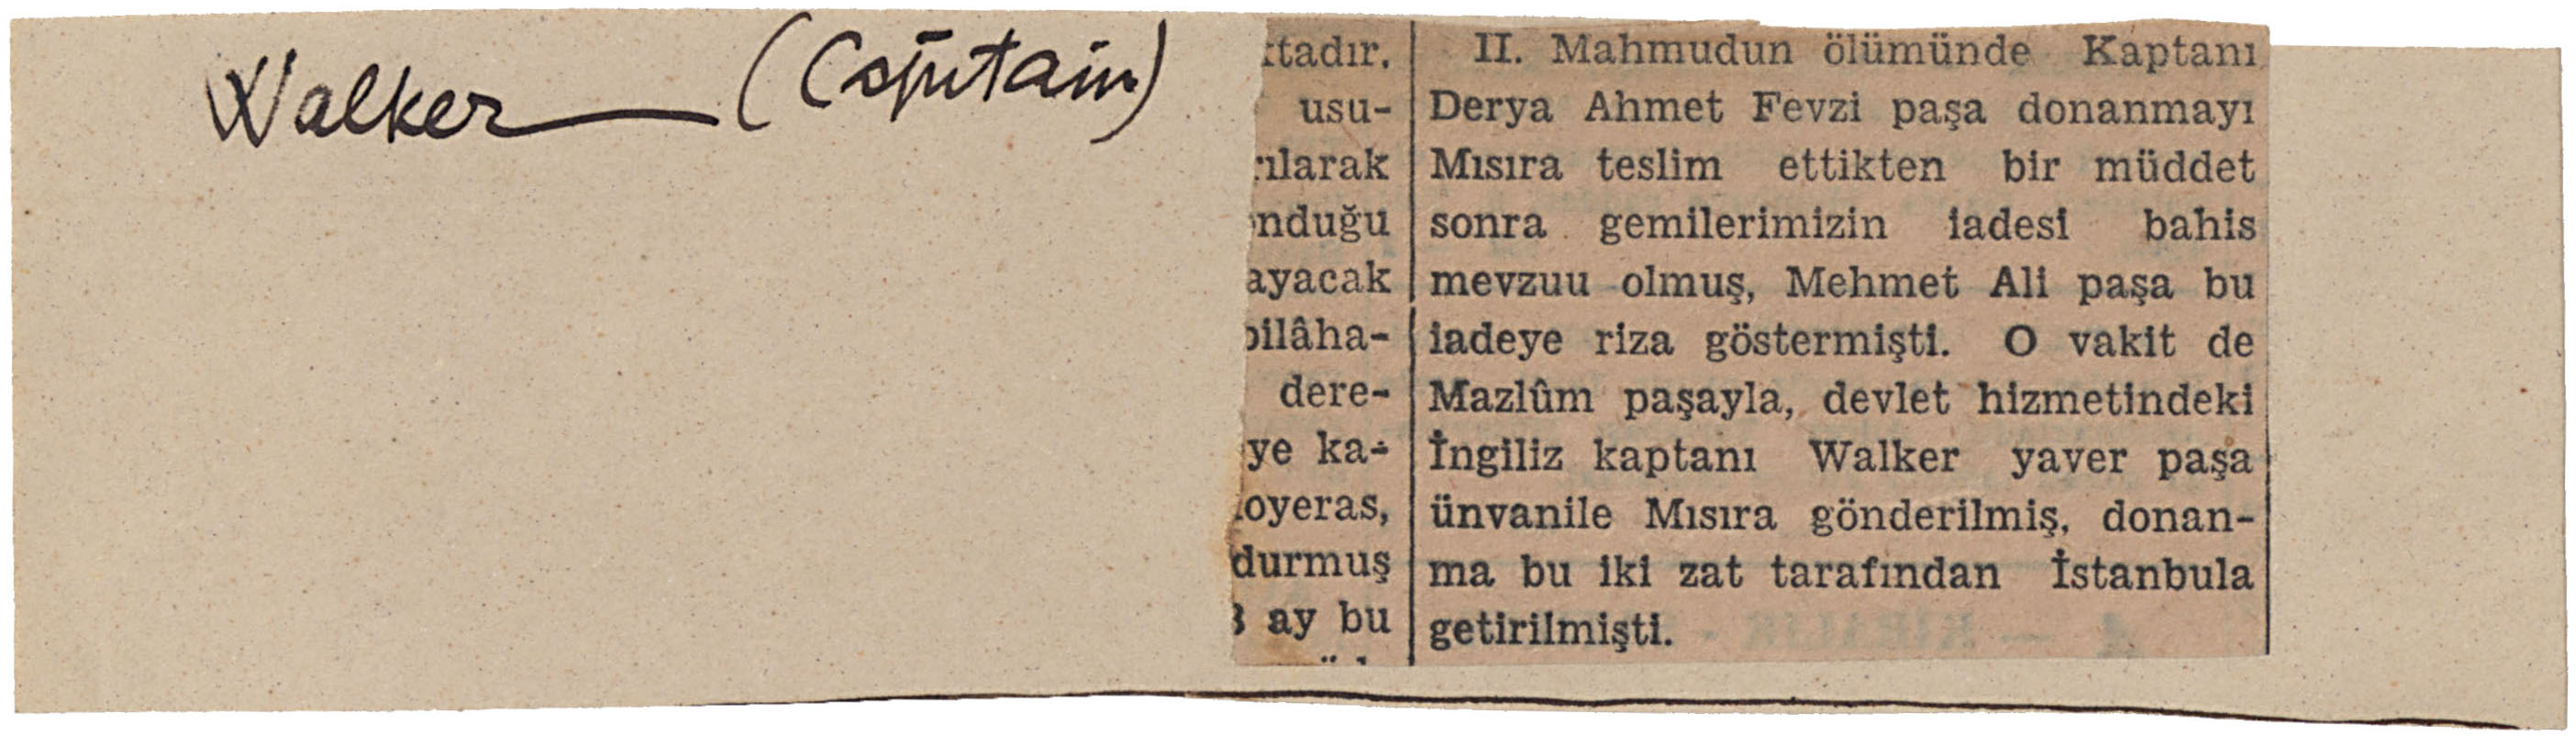 Walker — (Capitain)
ktadır.
usu-
rılarak
nduğu
ayacak
bilâha-
dere-
ye ka-
oyeras,
durmuş
3 ay bu
II. Mahmudun ölümünde Kaptanı
Derya Ahmet Fevzi paşa donanmayı
Mısıra teslim ettikten bir müddet
sonra gemilerimizin iadesi bahis
mevzuu olmuş, Mehmet Ali paşa bu
iadeye riza göstermişti. O vakit de
Mazlûm paşayla, devlet hizmetindeki
İngiliz kaptanı Walker yaver paşa
ünvanile Mısıra gönderilmiş, donan-
ma bu iki zat tarafından İstanbula
getirilmişti.